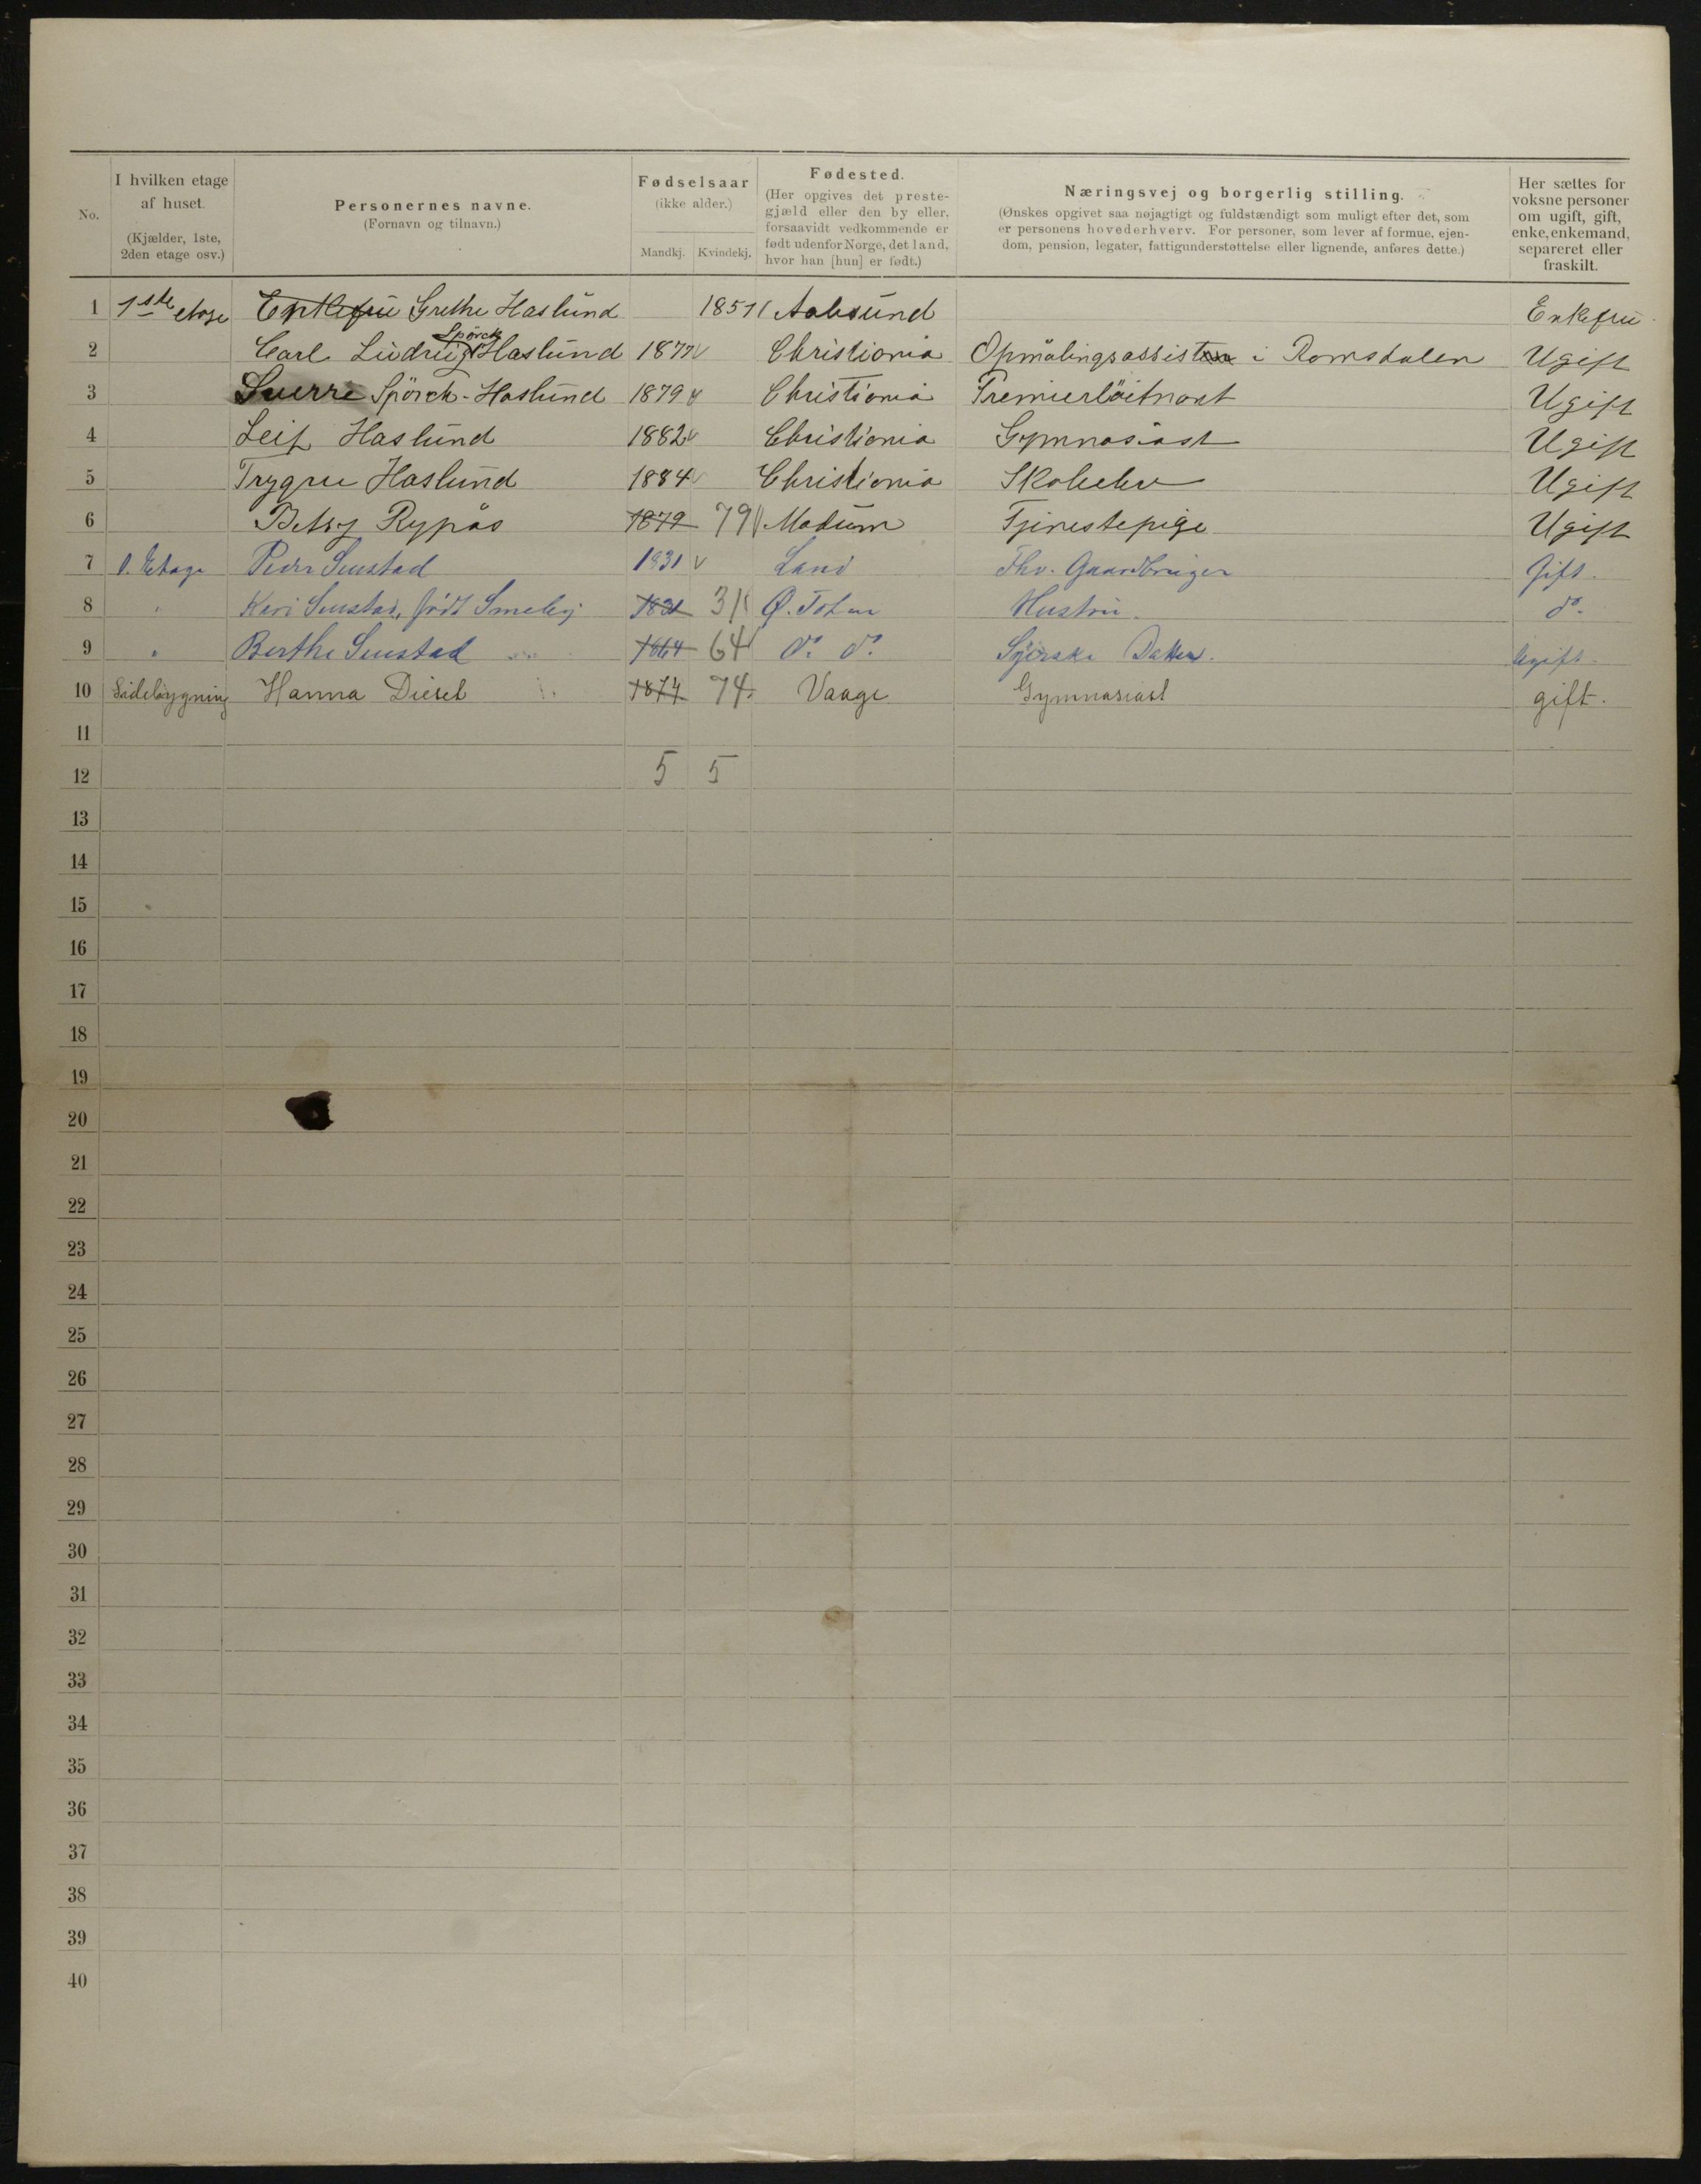 No.
I hvilken etage af huset. (Kjælder, 1ste, 2den etage osv.)
Personernes navne. (Fornavn og tilnavn.)
Fødselsaar (ikke alder.) Mandkj. Kvindekj.
Fødested. (Her opgives det prestegjæld eller den by eller, forsaavidt vedkommende er født udenfor Norge, det land, hvor han [hun] er født.)
Næringsvej og borgerlig stilling. (Ønskes opgivet saa nøjagtigt og fuldstændigt som muligt efter det, som er personens hovederhverv. For personer, som lever af formue, ejendom, pension, legater, fattigunderstøttelse eller lignende, anføres dette.)
Her sættes for voksne personer om ugift, gift, enke, enkemand, separeret eller fraskilt.
1 1ste etage Enkefru Grethe Haslund 1851 Aalesund Enkefru
2 Carl Ludvig Spörck Haslund 1877 Christiania Opmålingsassistent i Romsdalen Ugift
3 Sverre Spörck-Haslund 1879 Christiania Premierlöitnant Ugift
4 Leif Haslund 1882 Christiania Gymnasiast Ugift
5 Trygve Haslund 1884 Christiania Skoleelev Ugift
6 Betsy Rypås 1879 79 Modum Tjenestepige Ugift
7 1. Etage Peder Seustad 1831 Land Fhv. Gaardbruger Gift.
8 " Kari Seustad, født Smeby 1831 31 Ø. Toten Hustru. do.
9 " Berthe Seustad 1864 64 do. do. Syerske Datter. Ugift.
10 Sidebygning Hanna Diesel 1874 74 Vaage Gymnasiast gift.
11
12 5 5
13
14
15
16
17
18
19
20
21
22
23
24
25
26
27
28
29
30
31
32
33
34
35
36
37
38
39
40